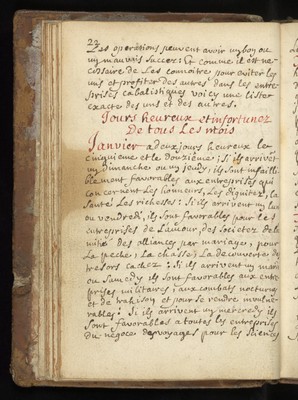 22
Les operations peuvent avoir un bon ou
un mauvais succes: Et comme il est ne-
cessaire de Les connoitre pour eviter les
uns et profiter des autres dans les entre
prises cabalistiques voicy une lister
exacte des uns et des autres.
Jours heureux et infortunez
De tous Les Mois
Janvier a deux jours heureux le
cinquieme et le Douzieme; Si ils arrivent
un dimanche ou un jeudy, ils sont infailli
blement favorables aux entreprises qui
concernent les honneurs, Les dignitez, la
Santé Les richesses: Si ils arrivent un lun
ou vendredi, ils Sont favorables pour les
entreprises de L'amour, des Societez
des alliances par mariage, pour
La peche, La chasse, La decouverte des
tresors cachez: Si ils arrivent un mardi
ou Samedy ils Sont favorables aux entre
prises militaires, aux combats nocturnes
et de trahison et pour se rendre invulne-
rables: Si ils arrivent un mercredy ils
Sont favorables a toutes les entreprises
du negoce des voyages pour les Sciences